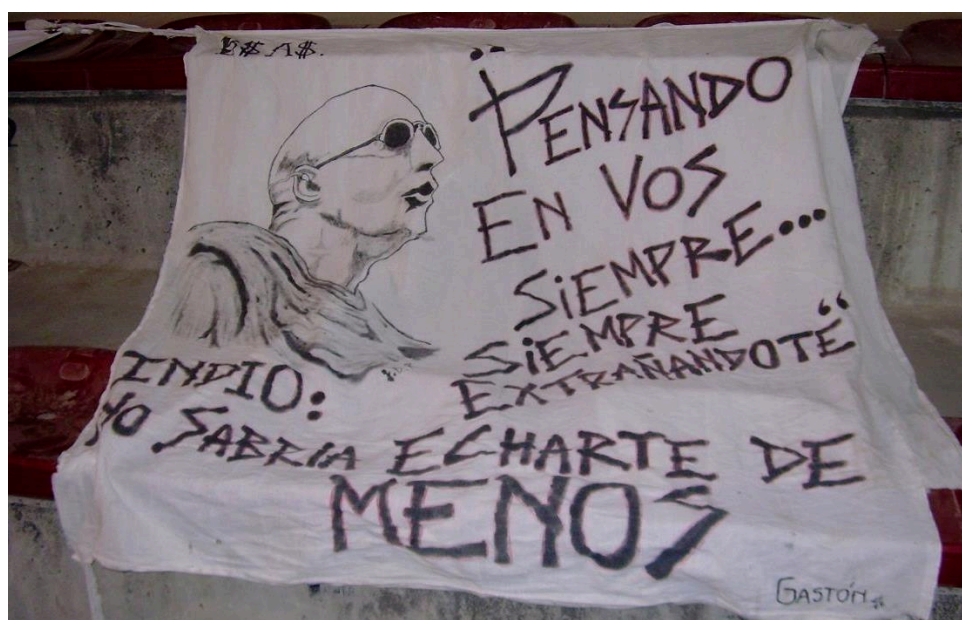 B$.A$.
"PENSANDO
EN VOS
SiEMPRE...
SiEMPRE
EXTRAÑANDOTÉ"
INDIO:
YO SABRIA ECHARTE DE
MENOS
GASTÓN.